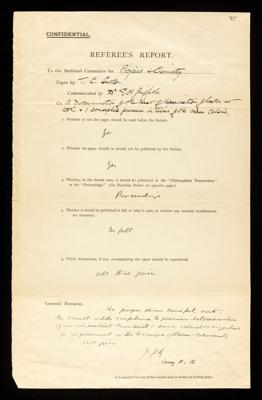 95
CONFIDENTIAL.
REFEREE'S REPORT.
To the Sectional Committee for Physics & Chemistry
Paper by T. C. Sutton
Communicated by Dr E H Griffiths
On A Determination of the Heat of Vaporisation of Water at
100°C & 1 atmosphere pressure in terms of the Mean Calorie.
1. Whether or not the paper should be read before the Society.
Yes
2. Whether the paper should or should not be published by the Society.
Yes
3. Whether, in the former case, it should be published in the "Philosophical Transactions"
or the "Proceedings." (See Standing Orders on opposite page.)
Proceedings
4. Whether it should be published in full or only in part, or whether any material modifications
are necessary.
In full
5. Which illustrations, if any, accompanying the paper should be reproduced.
All those given
General Remarks.
The paper shows careful work:
the result adds confidence to previous determinations
of an important Constant: some valuable suggestions
for improvement in the technique of
are given
May 8. 16
It is requested that any further remarks may be written on the blank pages.